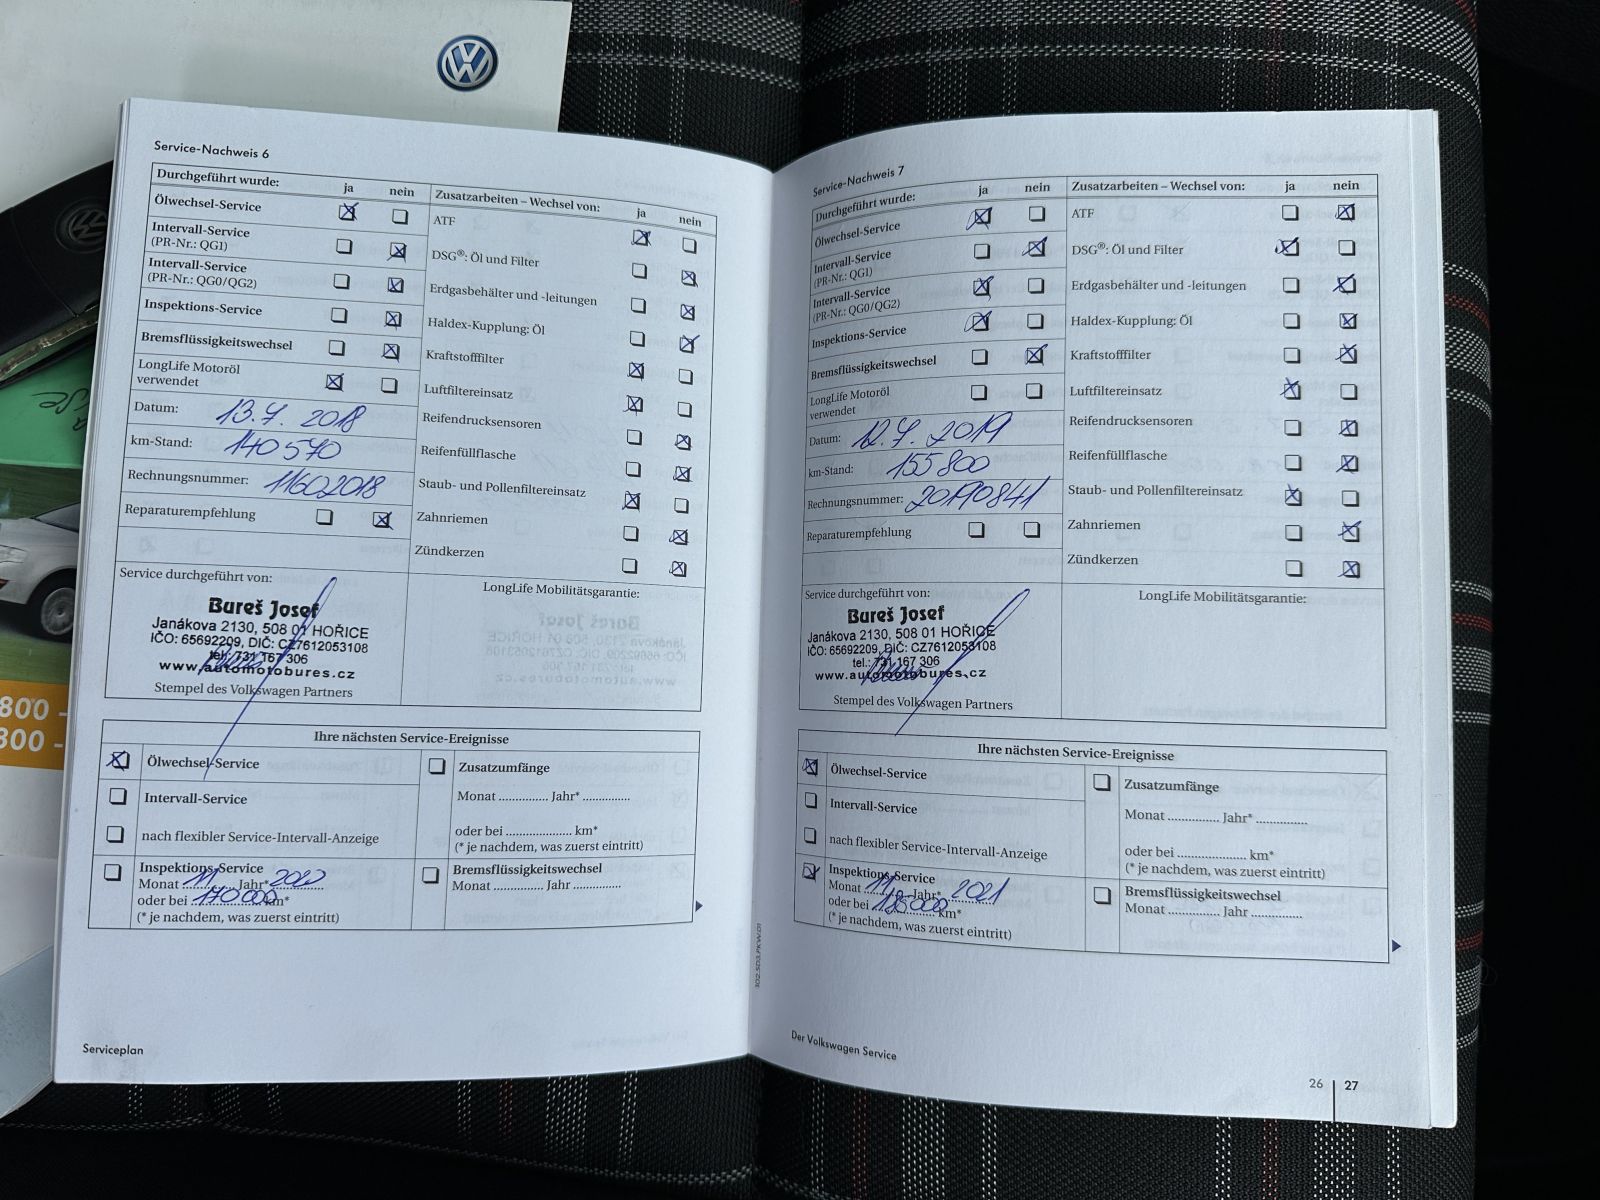 Service-Nachweis 6
Durchgeführt wurde: ja nein
Ölwechsel-Service
Intervall-Service
(PR-Nr.: QG1)
Intervall-Service
(PR-Nr.: QG0/QG2)
Inspektions-Service
Bremsflüssigkeitswechsel
LongLife Motoröl
verwendet
Datum: 13.7. 2018
km-Stand: 140 570
Rechnungsnummer: 11602018
Reparaturempfehlung
Zusatzarbeiten – Wechsel von: ja nein
ATF
DSG®: Öl und Filter
Erdgasbehälter und -leitungen
Haldex-Kupplung: Öl
Kraftstofffilter
Luftfiltereinsatz
Reifendrucksensoren
Reifenfüllflasche
Staub- und Pollenfiltereinsatz
Zahnriemen
Zündkerzen
Service durchgeführt von:
Bureš Josef
Janákova 2130, 508 01 HOŘICE
IČO: 65692209, DIČ: CZ7612053108
tel.: 731 167 306
www.automotobures.cz
Stempel des Volkswagen Partners
LongLife Mobilitätsgarantie:
Ihre nächsten Service-Ereignisse
Ölwechsel-Service
Intervall-Service
nach flexibler Service-Intervall-Anzeige
Inspektions-Service
Monat 11 Jahr* 2020
oder bei 170 000 km*
(* je nachdem, was zuerst eintritt)
Zusatzumfänge
Monat ............... Jahr* ...............
oder bei ..................... km*
(* je nachdem, was zuerst eintritt)
Bremsflüssigkeitswechsel
Monat ............... Jahr ...............
Serviceplan
Service-Nachweis 7
Durchgeführt wurde: ja nein
Ölwechsel-Service
Intervall-Service
(PR-Nr.: QG1)
Intervall-Service
(PR-Nr.: QG0/QG2)
Inspektions-Service
Bremsflüssigkeitswechsel
LongLife Motoröl
verwendet
Datum: 12.7. 2019
km-Stand: 155 800
Rechnungsnummer: 20190841
Reparaturempfehlung
Zusatzarbeiten – Wechsel von: ja nein
ATF
DSG®: Öl und Filter
Erdgasbehälter und -leitungen
Haldex-Kupplung: Öl
Kraftstofffilter
Luftfiltereinsatz
Reifendrucksensoren
Reifenfüllflasche
Staub- und Pollenfiltereinsatz
Zahnriemen
Zündkerzen
Service durchgeführt von:
Bureš Josef
Janákova 2130, 508 01 HOŘICE
IČO: 65692209, DIČ: CZ7612053108
tel.: 731 167 306
www.automotobures.cz
Stempel des Volkswagen Partners
LongLife Mobilitätsgarantie:
Ihre nächsten Service-Ereignisse
Ölwechsel-Service
Intervall-Service
nach flexibler Service-Intervall-Anzeige
Inspektions-Service
Monat 11 Jahr* 2021
oder bei 185000 km*
(* je nachdem, was zuerst eintritt)
Zusatzumfänge
Monat ............... Jahr* ...............
oder bei ..................... km*
(* je nachdem, was zuerst eintritt)
Bremsflüssigkeitswechsel
Monat ............... Jahr ...............
Der Volkswagen Service
26 | 27
800 -
800 -